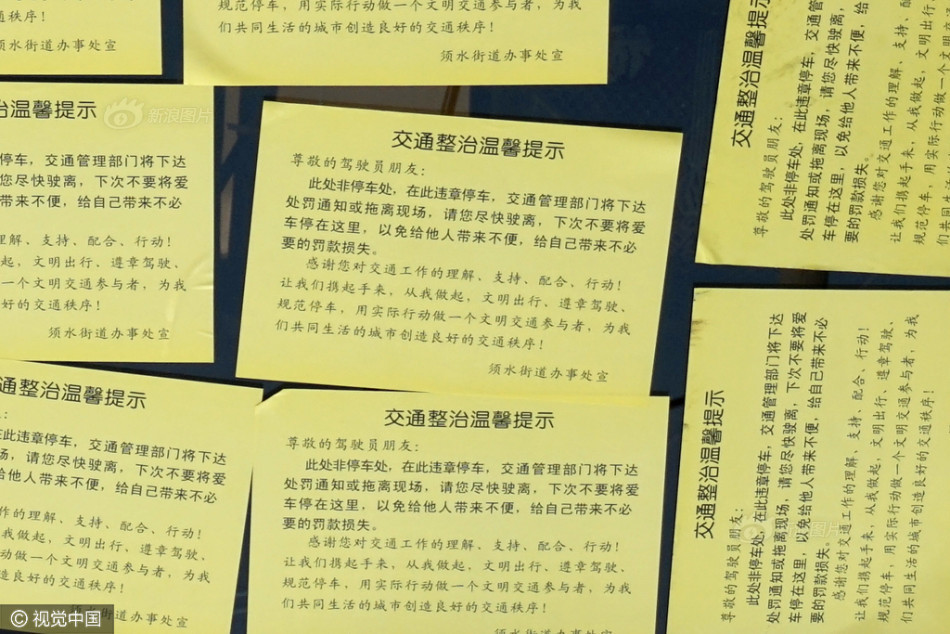 规范停车，用实际行动做一个文明交通参与者，为我
们共同生活的城市创造良好的交通秩序！
须水街道办事处宣
通秩序！
须水街道办事处宣
治温馨提示
停车，交通管理部门将下达
您尽快驶离，下次不要将爱
带来不便，给自己带来不必
理解、支持、配合、行动！
起，文明出行、遵章驾驶、
一个文明交通参与者，为我
好的交通秩序！
须水街道办事处宣
新浪图片
交通整治温馨提示
尊敬的驾驶员朋友：
此处非停车处，在此违章停车，交通管理部门将下达
处罚通知或拖离现场，请您尽快驶离，下次不要将爱
车停在这里，以免给他人带来不便，给自己带来不必
要的罚款损失。
感谢您对交通工作的理解、支持、配合、行动！
让我们携起手来，从我做起，文明出行、遵章驾驶、
规范停车，用实际行动做一个文明交通参与者，为我
们共同生活的城市创造良好的交通秩序！
须水街道办事处宣
交通整治温馨提示
尊敬的驾驶员朋友：
此处非停车处，在此违章停车，交通
处罚通知或拖离现场，请您尽快驶离，
车停在这里，以免给他人带来不便，给
要的罚款损失。
感谢您对交通工作的理解、支持、
让我们携起手来，从我做起，文明出行
规范停车，用实际行动做一个文明交
们共同生
通整治温馨提示
在此违章停车，交通管理部门将下达
场，请您尽快驶离，下次不要将爱
给他人带来不便，给自己带来不必
作的理解、支持、配合、行动！
我做起，文明出行、遵章驾驶、
动做一个文明交通参与者，为我
造良好的交通秩序！
街道办事处宣
交通整治温馨提示
尊敬的驾驶员朋友：
此处非停车处，在此违章停车，交通管理部门将下达
处罚通知或拖离现场，请您尽快驶离，下次不要将爱
车停在这里，以免给他人带来不便，给自己带来不必
要的罚款损失。
感谢您对交通工作的理解、支持、配合、行动！
让我们携起手来，从我做起，文明出行、遵章驾驶、
规范停车，用实际行动做一个文明交通参与者，为我
们共同生活的城市创造良好的交通秩序！
须水街道办事处宣
交通整治温馨提示
尊敬的驾驶员朋友：
此处非停车处，在此违章停车，交通管理部门将下达
处罚通知或拖离现场，请您尽快驶离，下次不要将爱
车停在这里，以免给他人带来不便，给自己带来不必
要的罚款损失。
感谢您对交通工作的理解、支持、配合、行动！
让我们携起手来，从我做起，文明出行、遵章驾驶、
规范停车，用实际行动做一个文明交通参与者，为我
们共同生活的城市创造良好的交通秩序！
©视觉中国